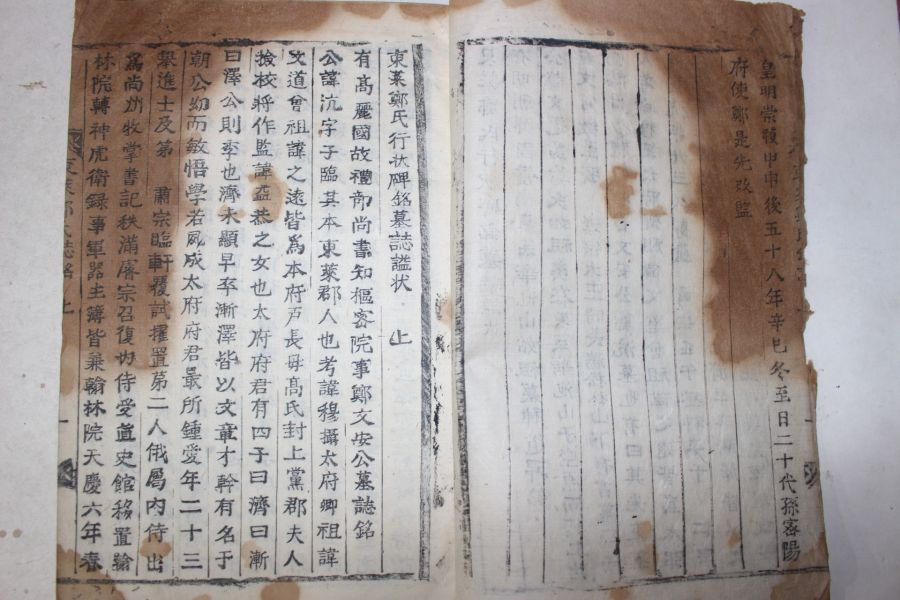 皇明崇禎甲申後五十八年辛巳冬至日二十代孫密陽
府使鄭是先改監
東萊鄭氏行狀碑銘墓誌謚狀 上
有高麗國故禮部尚書知樞密院事鄭文安公墓誌銘
公諱沆字子臨其本東萊郡人也考諱穆攝太府卿祖諱
文道曾祖諱之遠皆爲本府戶長毋高氏封上黨郡夫人
檢校將作監諱益恭之女也太府府君有四子曰濟曰漸
曰澤公則季也濟未顯早卒漸澤皆以文章才幹有名于
朝公幼而敏悟學若夙成太府府君最所鍾愛年二十三
擧進士及第 肅宗臨軒覆試擢置第二人俄屬內侍出
爲尚州牧掌書記秩滿睿宗召復內侍受直史館移置翰
林院轉神虎衛録事軍器主簿皆兼翰林院天慶六年春